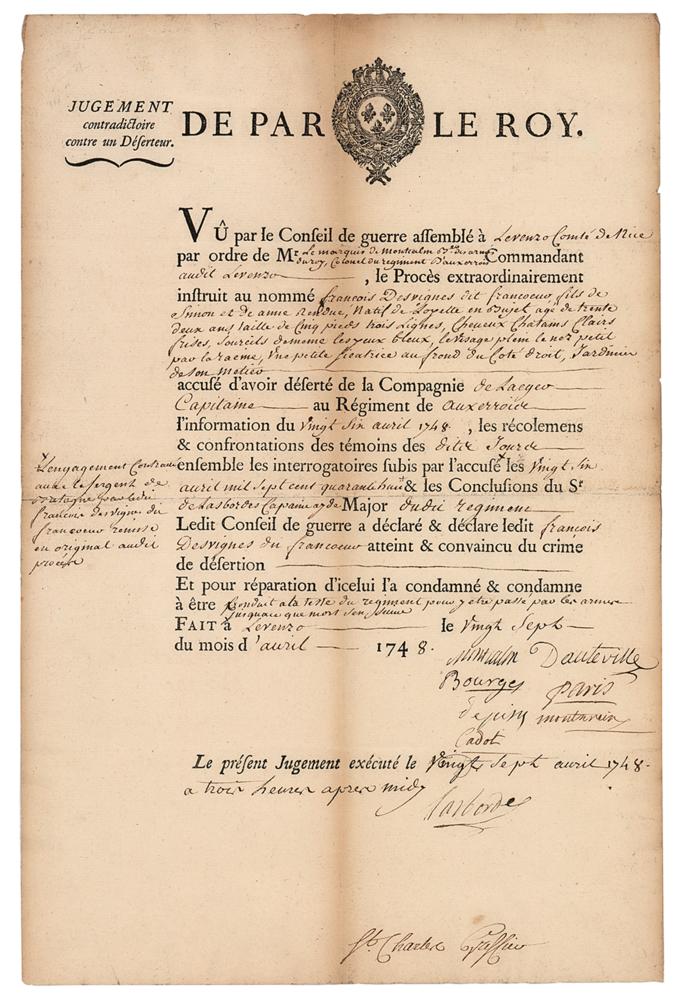 JUGEMENT
contradictoire
contre un Déserteur.
DE PAR LE ROY.
VÛ par le Conseil de guerre assemblé à Levenzo Comté de Nice
par ordre de Mr. Le marquis de Montcalm
du roy, Colonel du regiment D'auxerrois Commandant
audit Levenzo , le Procès extraordinairement
instruit au nommé françois Desvignes dit francoeur, fils de
Simon et de anne Rendue, Natif de Loyette en Bujet, agé de trente
deux ans taille de Cinq pieds trois Lignes, Cheveux Chatains Clairs
frises, Sourcils de meme les yeux bleux, le visage plein le nez petit
par la racine, Une petite Cicatrice au front du Coté droit, Jardinier
de Son metier
accusé d'avoir déserté de la Compagnie de Laeger
Capitaine au Régiment de auxerrois
l'information du Vingt Six avril 1748. , les récolemens
& confrontations des témoins des dits Jours
ensemble les interrogatoires subis par l'accusé les Vingt Six
avril mil Sept Cent quarante huit & les Conclusions du Sr
de Lasbordes Capaine ayde Major dudit regiment
L'engagement Contracté
avec le Sergent de
par ledit
françois desvignes dit
francoeur remise
en original audit
procès
Ledit Conseil de guerre a déclaré & déclare ledit françois
Desvignes dit francoeur atteint & convaincu du crime
de désertion
Et pour réparation d'icelui l'a condamné & condamne
à être Conduit a la teste du regiment pour y etre passé par les armes
jusquace que mort Sen Suive
FAIT à Levenzo le Vingt Sept
du mois d'avril 1748.
Montcalm Dauteville
Bourges Paris
Cadot
Le présent Jugement exécuté le Vingt Sept avril 1748.
a trois heures apres midy
Lasbordes
St. Charles